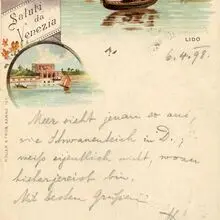 Saluti
da
Venezia
LIDO
6.4.98.
Meer sieht genau so aus,
wie Schwanenteich in D.;
weiß eigentlich nicht, warum
hierhergereist bin.
Mit besten Grüßen